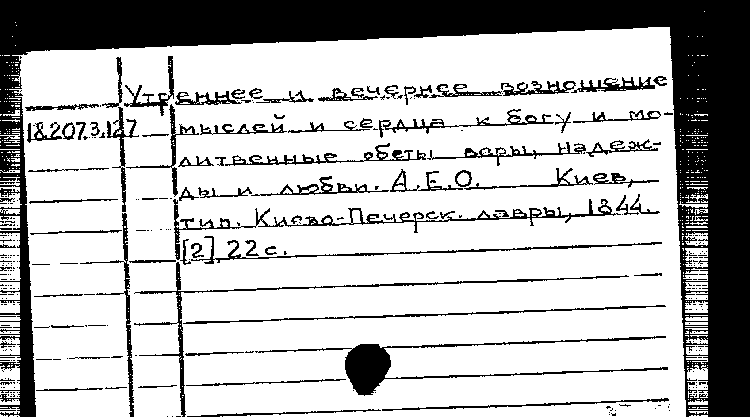 Утреннее и вечернее возношение
18.207.3.127 мыслей и сердца к богу и мо-
литвенные обеты веры, надеж-
ды и любви. А.Е.О. Киев,
тип. Киево-Печерск. лавры, 1844.
[2], 22 с.